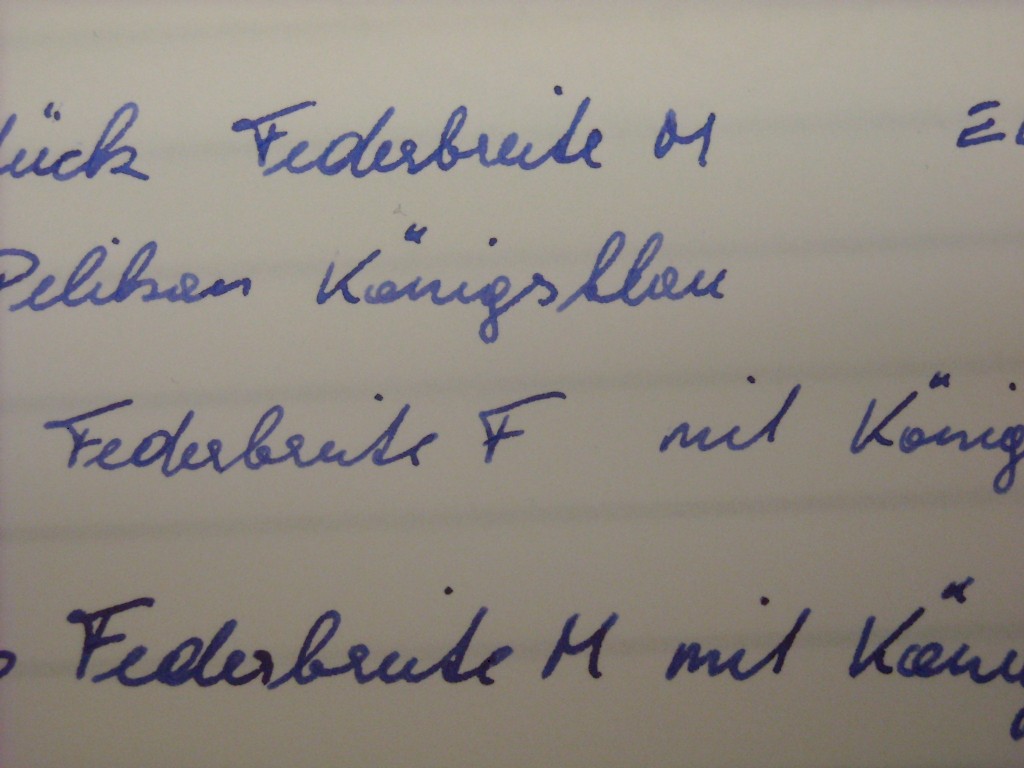 Federbreite M
Pelikan Königsblau
Federbreite F mit König
Federbreite M mit König